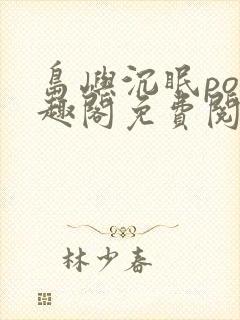 島嶼沉眠po
趣閣免費閱
林少春